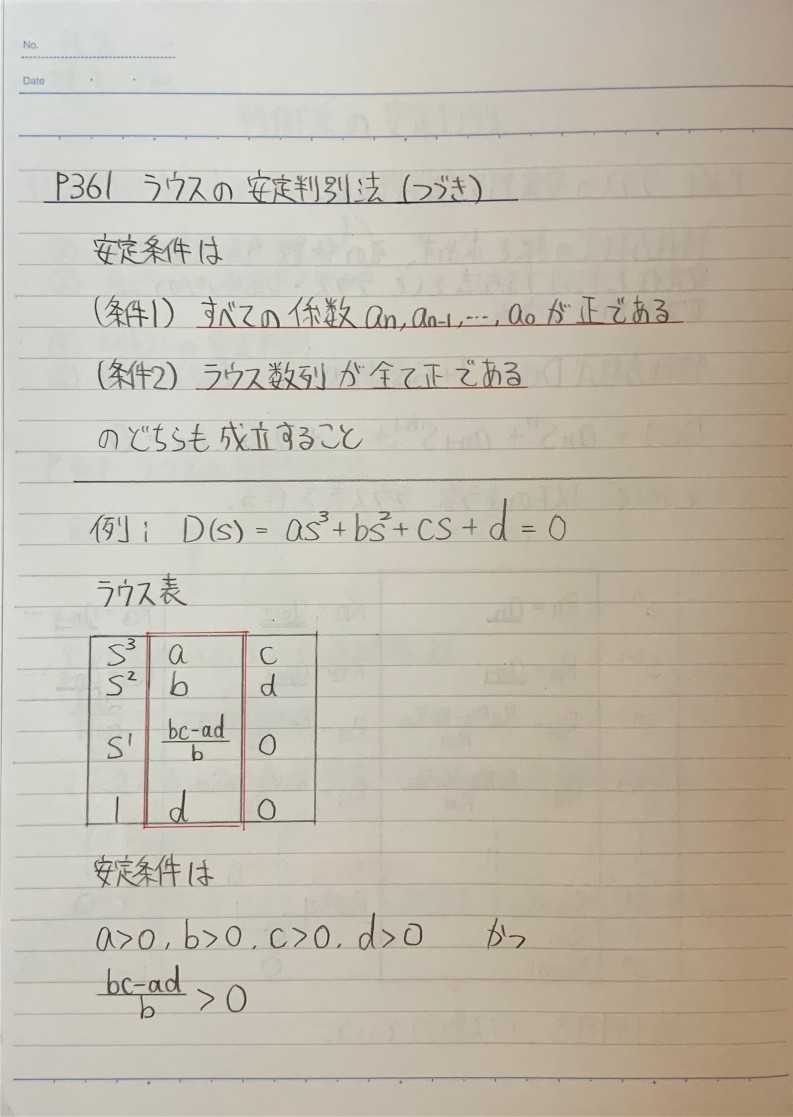 No.
Date
P361 ラウスの安定判別法(つづき)
安定条件は
(条件1) すべての係数 an, an-1, …, a0 が正である
(条件2) ラウス数列が全て正である
のどちらも成立すること
例; D(s) = as³+bs²+cs+d = 0
ラウス表
S³ a c
S² b d
S¹ bc-ad/b 0
1 d 0
安定条件は
a>0, b>0, c>0, d>0 かつ
bc-ad/b > 0